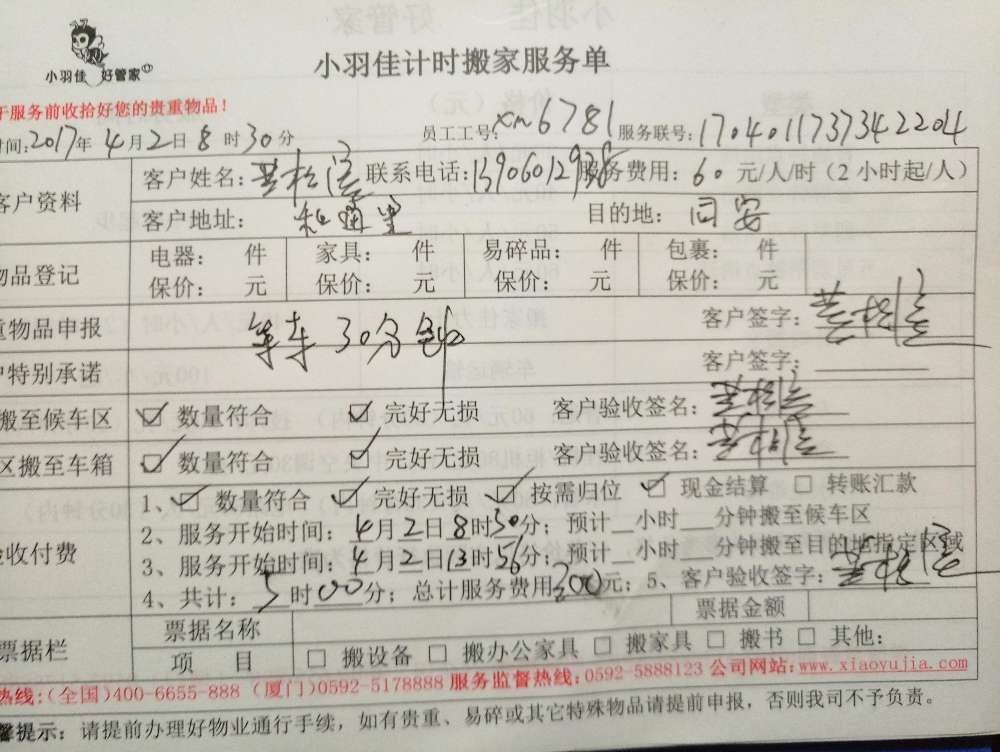 小羽佳 好管家
小羽佳计时搬家服务单
于服务前收拾好您的贵重物品！
时间:2017年4月2日8时30分 员工工号:xm6781 服务联号:1704011737342204
客户资料 客户姓名: 联系电话:13906012928 服务费用:60元/人/时（2小时起/人）
客户地址: 目的地: 同安
物品登记 电器: 件 家具: 件 易碎品: 件 包裹: 件
保价: 元 保价: 元 保价: 元 保价: 元
重物品申报 等车30分钟 客户签字:
户特别承诺 客户签字:
搬至候车区 ☑ 数量符合 ☑ 完好无损 客户验收签名:
区搬至车箱 ☑ 数量符合 ☑ 完好无损 客户验收签名:
验收付费 1、☑ 数量符合 ☑ 完好无损 ☑ 按需归位 ☑ 现金结算 □ 转账汇款
2、服务开始时间:4月2日8时30分; 预计__小时___分钟搬至候车区
3、服务开始时间:4月2日13时56分; 预计__小时___分钟搬至目的地指定区域
4、共计:5时00分; 总计服务费用300元; 5、客户验收签字:
票据栏 票据名称 票据金额
项 目 □ 搬设备 □ 搬办公家具 □ 搬家具 □ 搬书 □ 其他:
热线:(全国)400-6655-888 (厦门)0592-5178888 服务监督热线:0592-5888123 公司网站:www.xiaoyujia.com
馨提示: 请提前办理好物业通行手续，如有贵重、易碎或其它特殊物品请提前申报，否则我司不予负责。